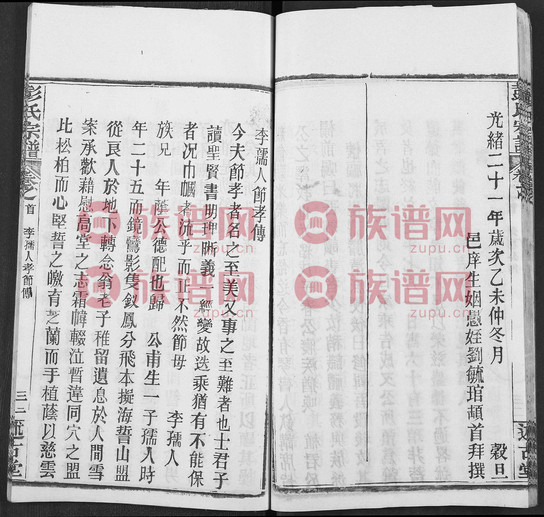 光緒二十一年歲次乙未仲冬月 穀旦
邑庠生姻愚姪劉毓琯頓首拜撰
述古堂
彭氏宗譜 卷之首 李孺人孝節傳 三二 述古堂
李孺人節孝傳
今夫節孝者名之至美又事之至難者也士君子
讀聖賢書明理晰義一經變故選乘猶有不能保
者况巾幗者流乎而正不然節母 李孺人
族兄 年 公德配也歸 公甫生一子孺人時
年二十五而鏡鸞影隻釵鳳分飛本擬海誓山盟
從良人於地下轉念翁老子稚留遺息於人間雪
案承歡藉慰高堂之志霜幃輟泣暫違同穴之盟
比松柏而心堅誓之皦 育芝蘭而手植蔭以慈雲
族谱网
zupu.cn
族谱网
zupu.cn
族谱网
zupu.cn
族谱网
zupu.cn